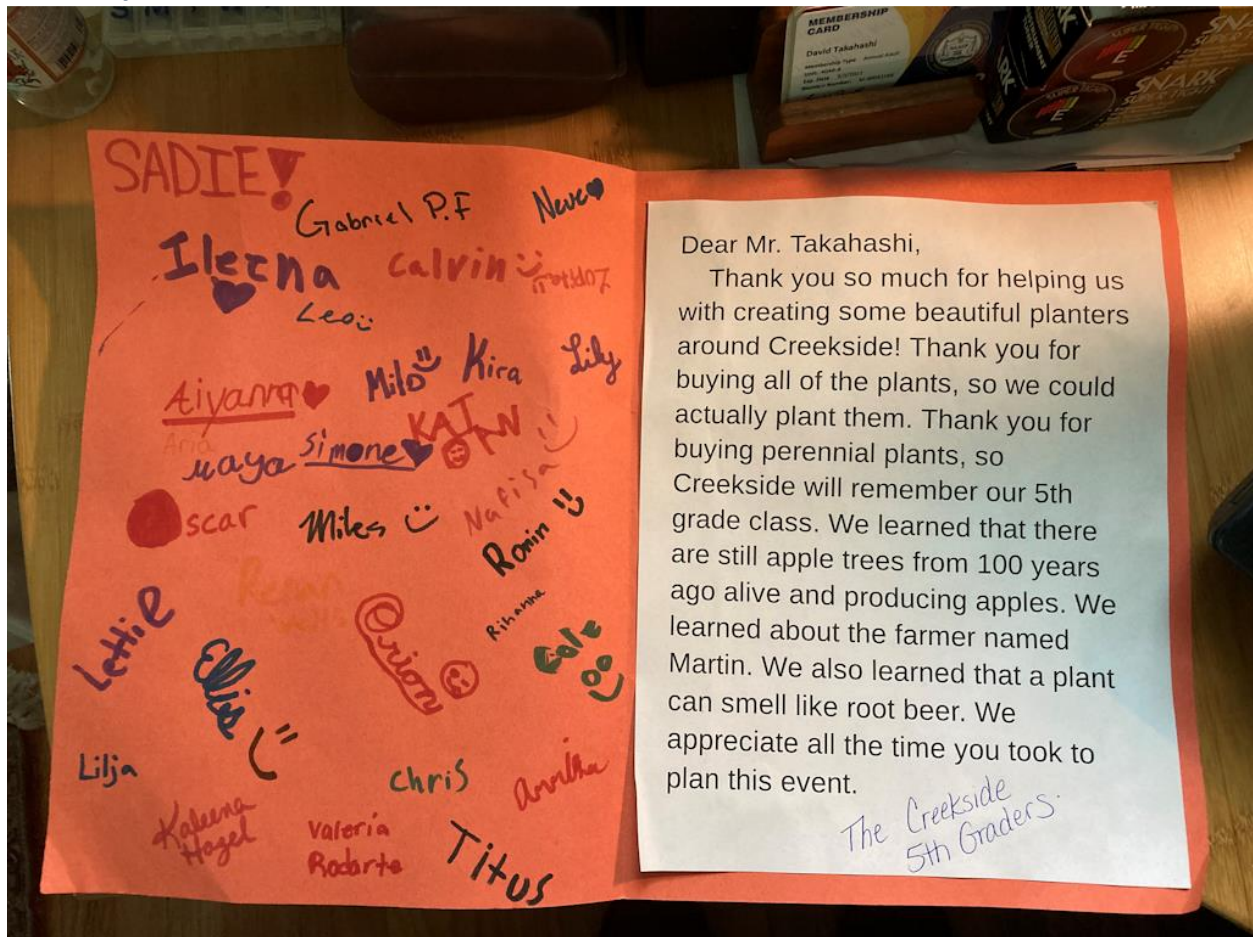 MEMBERSHIP
CARD
David Takahashi
SNARK
SADIE!
Gabriel P.F
Neve
Ileena
Calvin
Leo
Milo
Kira
Lily
Aiyanna
KAITN
Aria
maya
Simone
Nafisa
Oscar
Miles
Ronin
Lettie
Ellis
Orion
Rihanna
Cole
Lilja
Chris
Kaleena
Hazel
Valeria
Rodarte
Titus
Dear Mr. Takahashi,
Thank you so much for helping us
with creating some beautiful planters
around Creekside! Thank you for
buying all of the plants, so we could
actually plant them. Thank you for
buying perennial plants, so
Creekside will remember our 5th
grade class. We learned that there
are still apple trees from 100 years
ago alive and producing apples. We
learned about the farmer named
Martin. We also learned that a plant
can smell like root beer. We
appreciate all the time you took to
plan this event.
The Creekside
5th Graders.